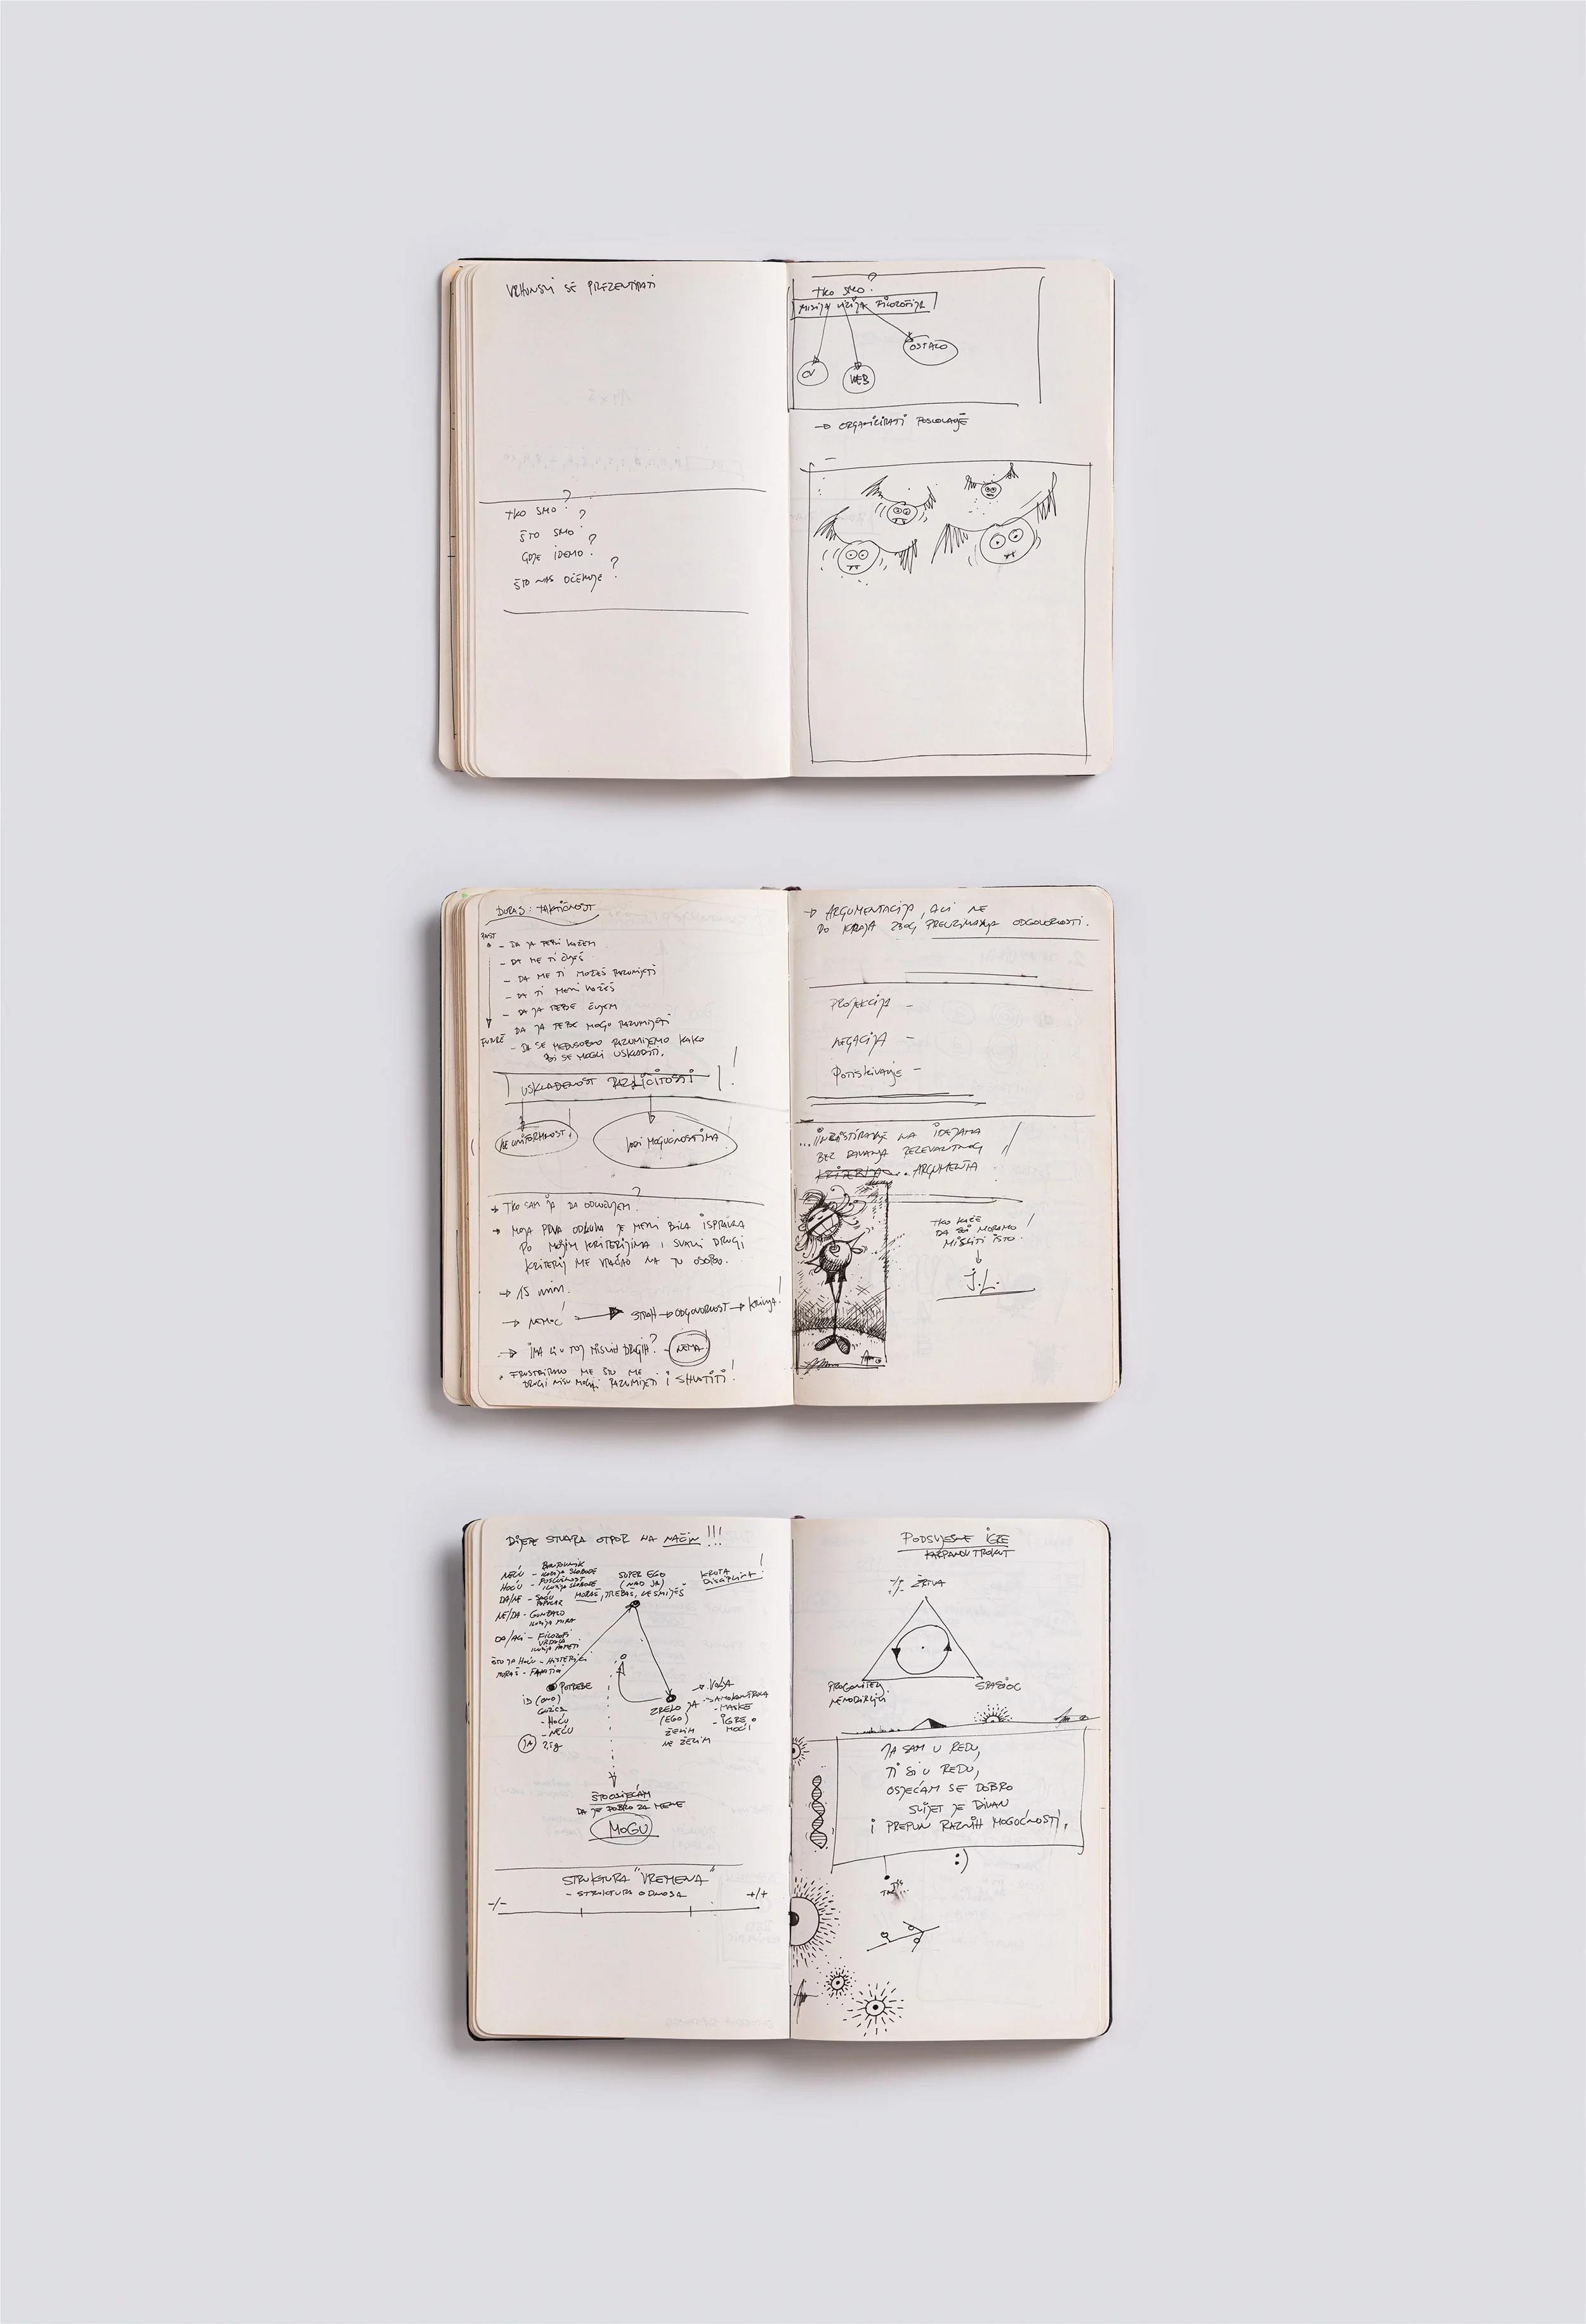 VRHUNSKI SE PREZENTIRATI
TKO SMO?
ŠTO SMO?
GDJE IDEMO?
ŠTO NAS OČEKUJE?
TKO SMO?
MISIJA VIZIJA FILOZOFIJA
OSTALO
CV
WEB
→ ORGANIZIRATI POSLOVANJE
TAKTIČNOST
PAST
- DA JA TEBI KAŽEM
- DA ME TI ČUJEŠ
- DA ME TI MOŽEŠ RAZUMIJETI
- DA TI MENI KAŽEŠ
- DA JA TEBE ČUJEM
- DA JA TEBE MOGU RAZUMIJETI
FUTURE
- DA SE MEĐUSOBNO RAZUMIJEMO KAKO
BI SE MOGLI USKLADITI.
USKLAĐENOST RAZLIČITOSTI!
NE UNIFORMNOST!
VODI MOGUĆNOSTIMA
→ TKO SAM JA DA ODLUČUJEM?
→ MOJA PRVA ODLUKA JE MENI BILA ISPRAVNA
PO MOJIM KRITERIJIMA I SVAKI DRUGI
KRITERIJ ME VRAĆAO NA TU OSOBU.
→ 15 min.
→ NEMOĆ! → STRAH → ODGOVORNOST → KRIVNJA!
→ IMA LI U TOJ MISLI DRUGIH? - NEMA!
• FRUSTRIRALO ME ŠTO ME
DRUGI NISU MOGLI RAZUMIJETI I SHVATITI!
→ ARGUMENTACIJA, ALI NE
DO KRAJA ZBOG PREUZIMANJA ODGOVORNOSTI.
PROJEKCIJA -
NEGACIJA -
POTISKIVANJE -
...INZISTIRANJE NA IDEJAMA
BEZ DAVANJA RELEVANTNOG
KRITERIJA.. ARGUMENTA
TKO KAŽE
DA SVI MORAMO
MISLITI ISTO!
J.L.
DIJETE STVARA OTPOR NA NAČIN!!!
NEĆU - BUNTOVNIK
ILUZIJA SLOBODE
HOĆU - POSLUŠNOST
ILUZIJA SLOBODE
DA/NE -
NE/DA -
ILUZIJA MIRA
DA/ALI - FILOZOFI
ILUZIJA PAMETI
ŠTO JA HOĆU - HISTERIJA
MORAŠ - FANATIK
SUPER EGO
(NAD JA)
MORAŠ, TREBAŠ, NE SMIJEŠ
KRUTA
DISCIPLINA!
POTREBE
ID (ONO)
- HOĆU
- NEĆU
JA
ZRELO JA
(EGO)
ŽELIM
NE ŽELIM
→ VOLJA
- SAMOKONTROLA
- MASKE
- IGRE
MOĆI
ŠTO OSJEĆAM
DA JE DOBRO ZA MENE
MOGU
STRUKTURA "VREMENA"
- STRUKTURA ODNOSA
-/-
+/+
PODSVJESNE IGRE
KARPANOV TROKUT
-/- ŽRTVA
PROGONITELJ
SPASIOC
JA SAM U REDU,
TI SI U REDU,
OSJEĆAM SE DOBRO
SVIJET JE DIVAN
I PREPUN RAZNIH MOGUĆNOSTI.
:)